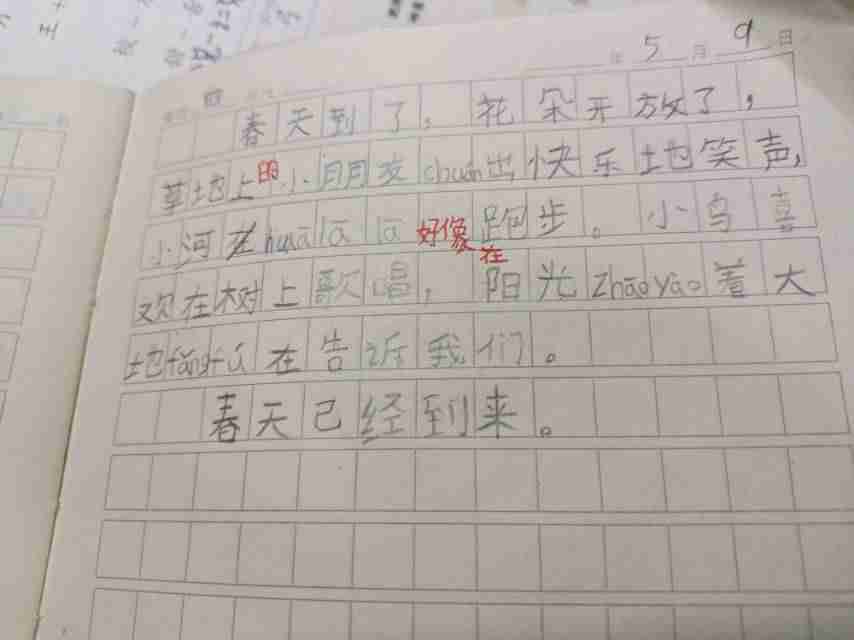 5月9日
春天到了，花朵开放了，
草地上的小朋友chuán出快乐地笑声，
小河在huālā lā好像在跑步。小鸟喜
欢在树上歌唱，阳光zhāo yào着大
地fǎng fú在告诉我们。
春天已经到来。